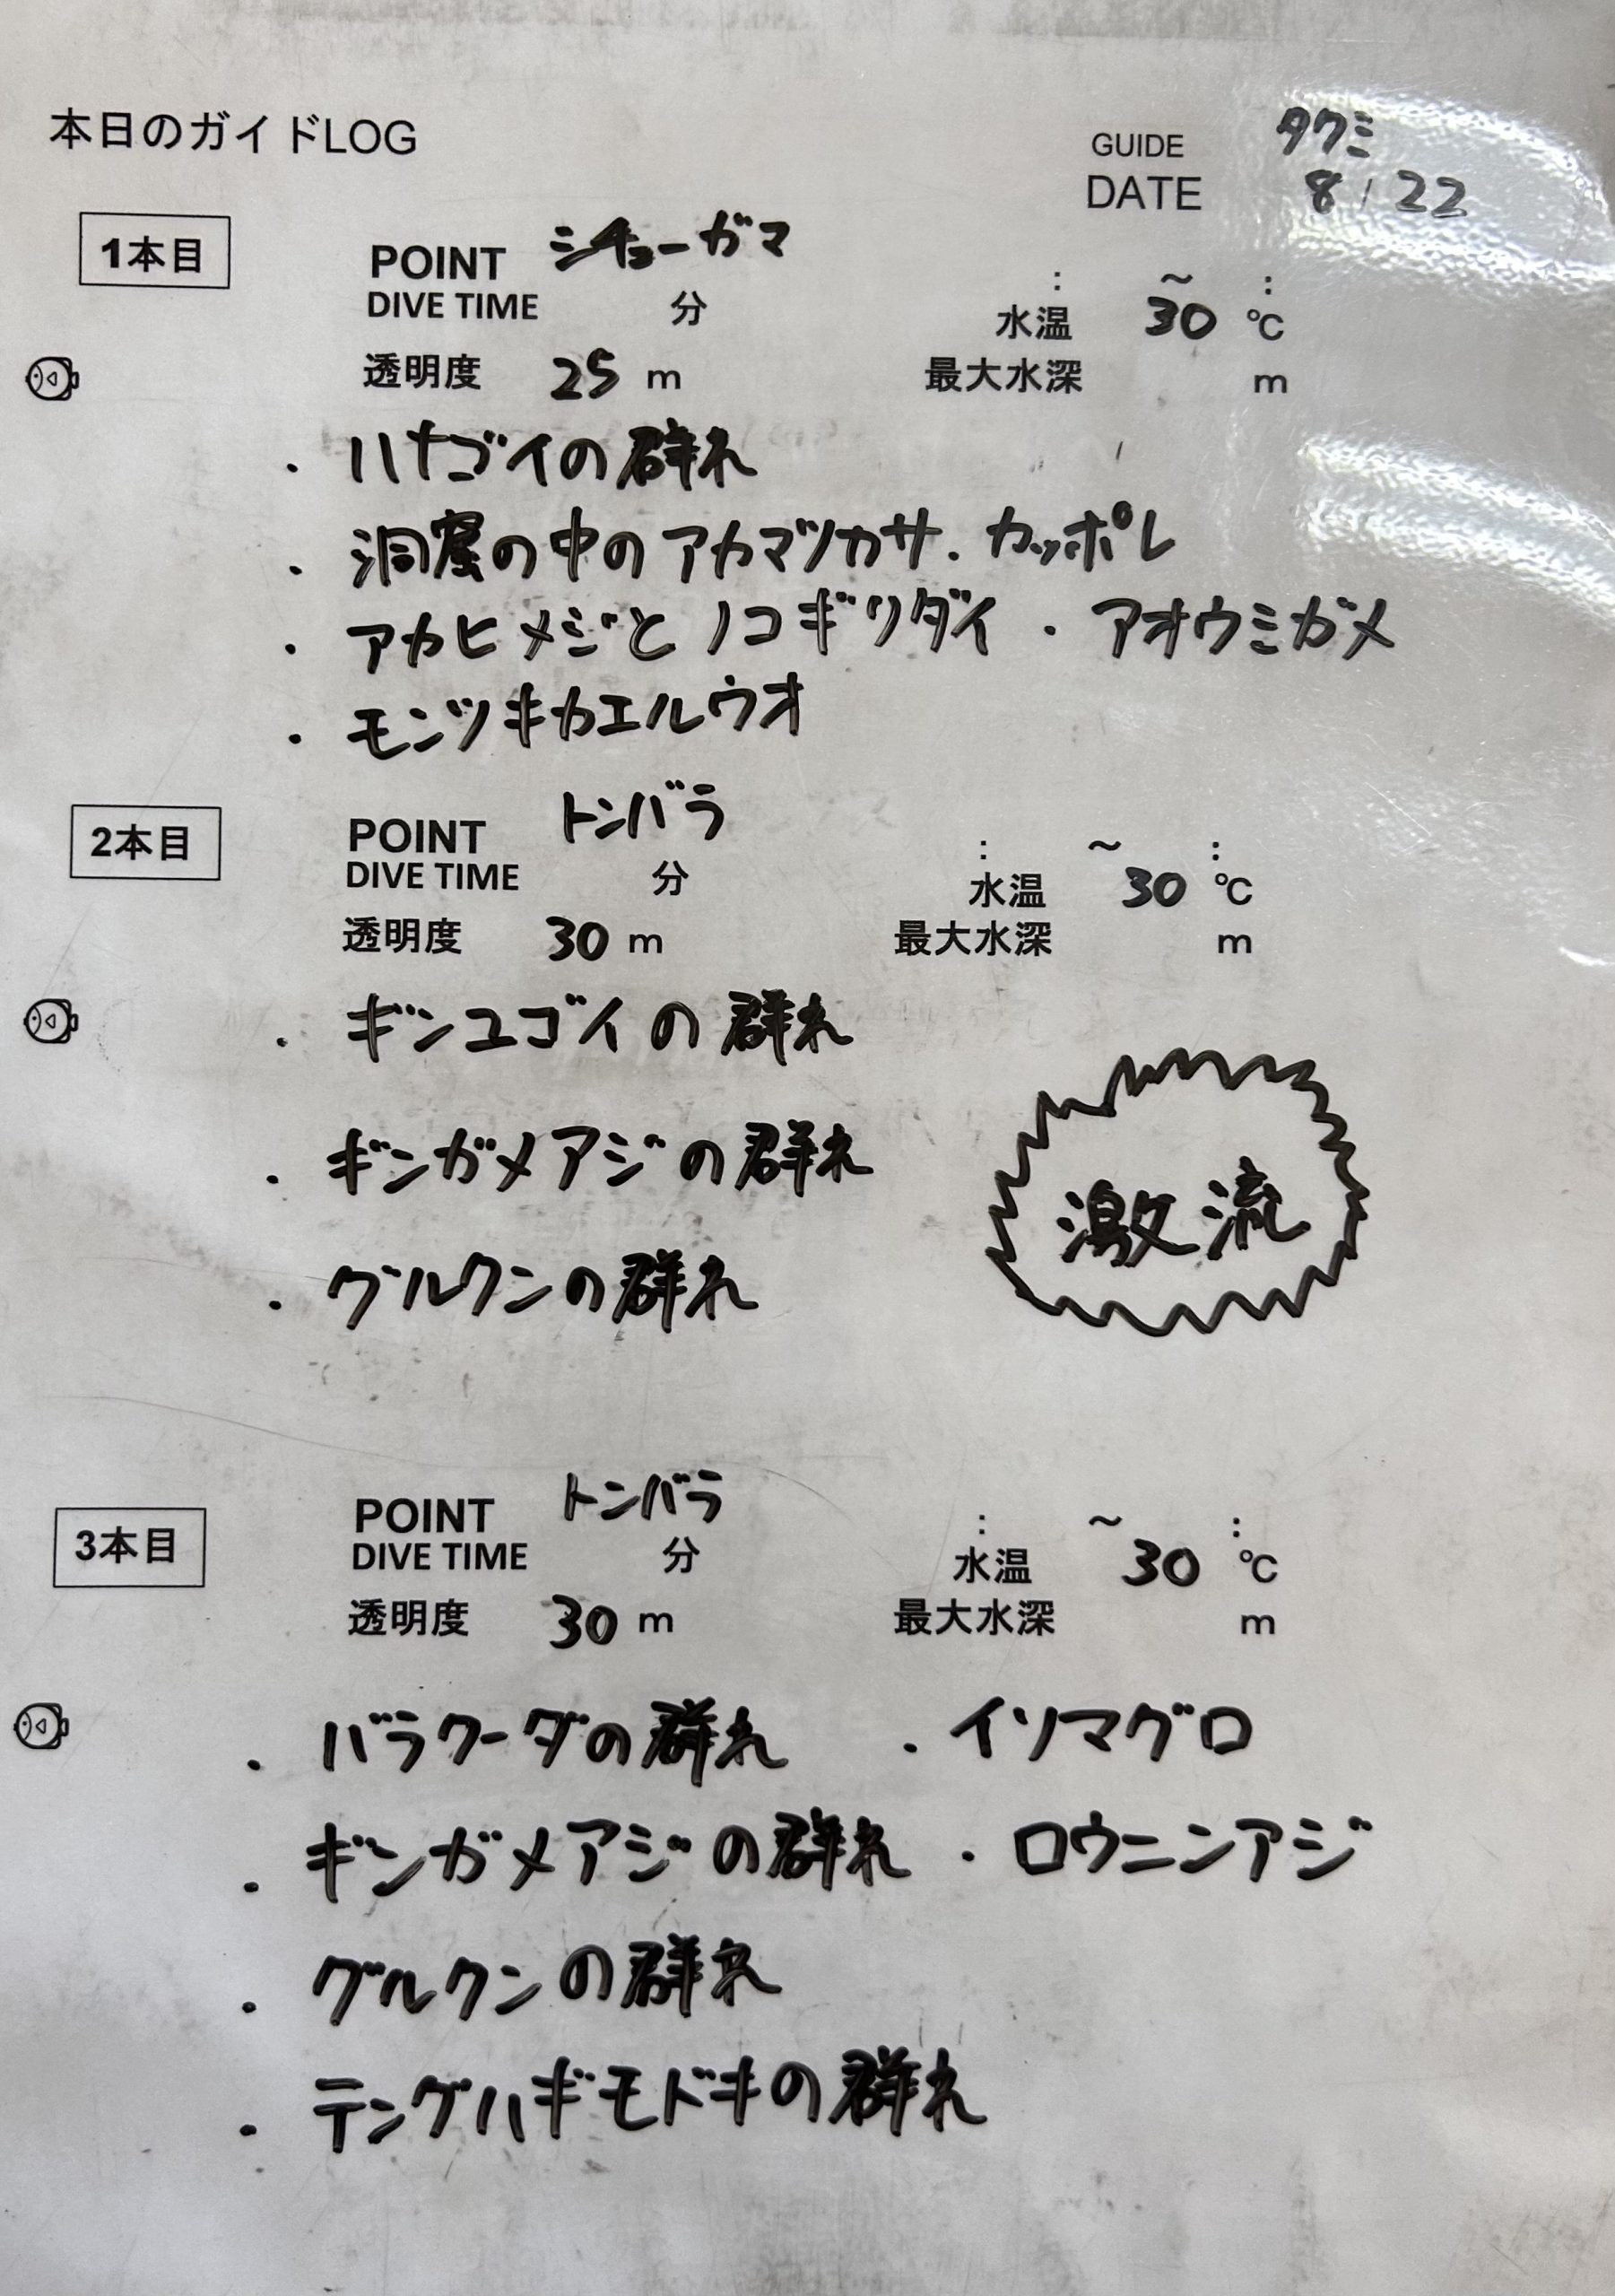 本日のガイドLOG
GUIDE タクミ
DATE 8/22
1本目
POINT シチューガマ
: ～ :
DIVE TIME 分 水温 30 ℃
透明度 25 m 最大水深 m
・ハナゴイの群れ
・洞窟の中のアカマツカサ・カッポレ
・アカヒメジとノコギリダイ ・アオウミガメ
・モンツキカエルウオ
2本目
POINT トンバラ
: ～ :
DIVE TIME 分 水温 30 ℃
透明度 30 m 最大水深 m
・ギンユゴイの群れ
・ギンガメアジの群れ
激流
・グルクンの群れ
3本目
POINT トンバラ
: ～ :
DIVE TIME 分 水温 30 ℃
透明度 30 m 最大水深 m
・バラクーダの群れ ・イソマグロ
・ギンガメアジの群れ ・ロウニンアジ
・グルクンの群れ
・テングハギモドキの群れ